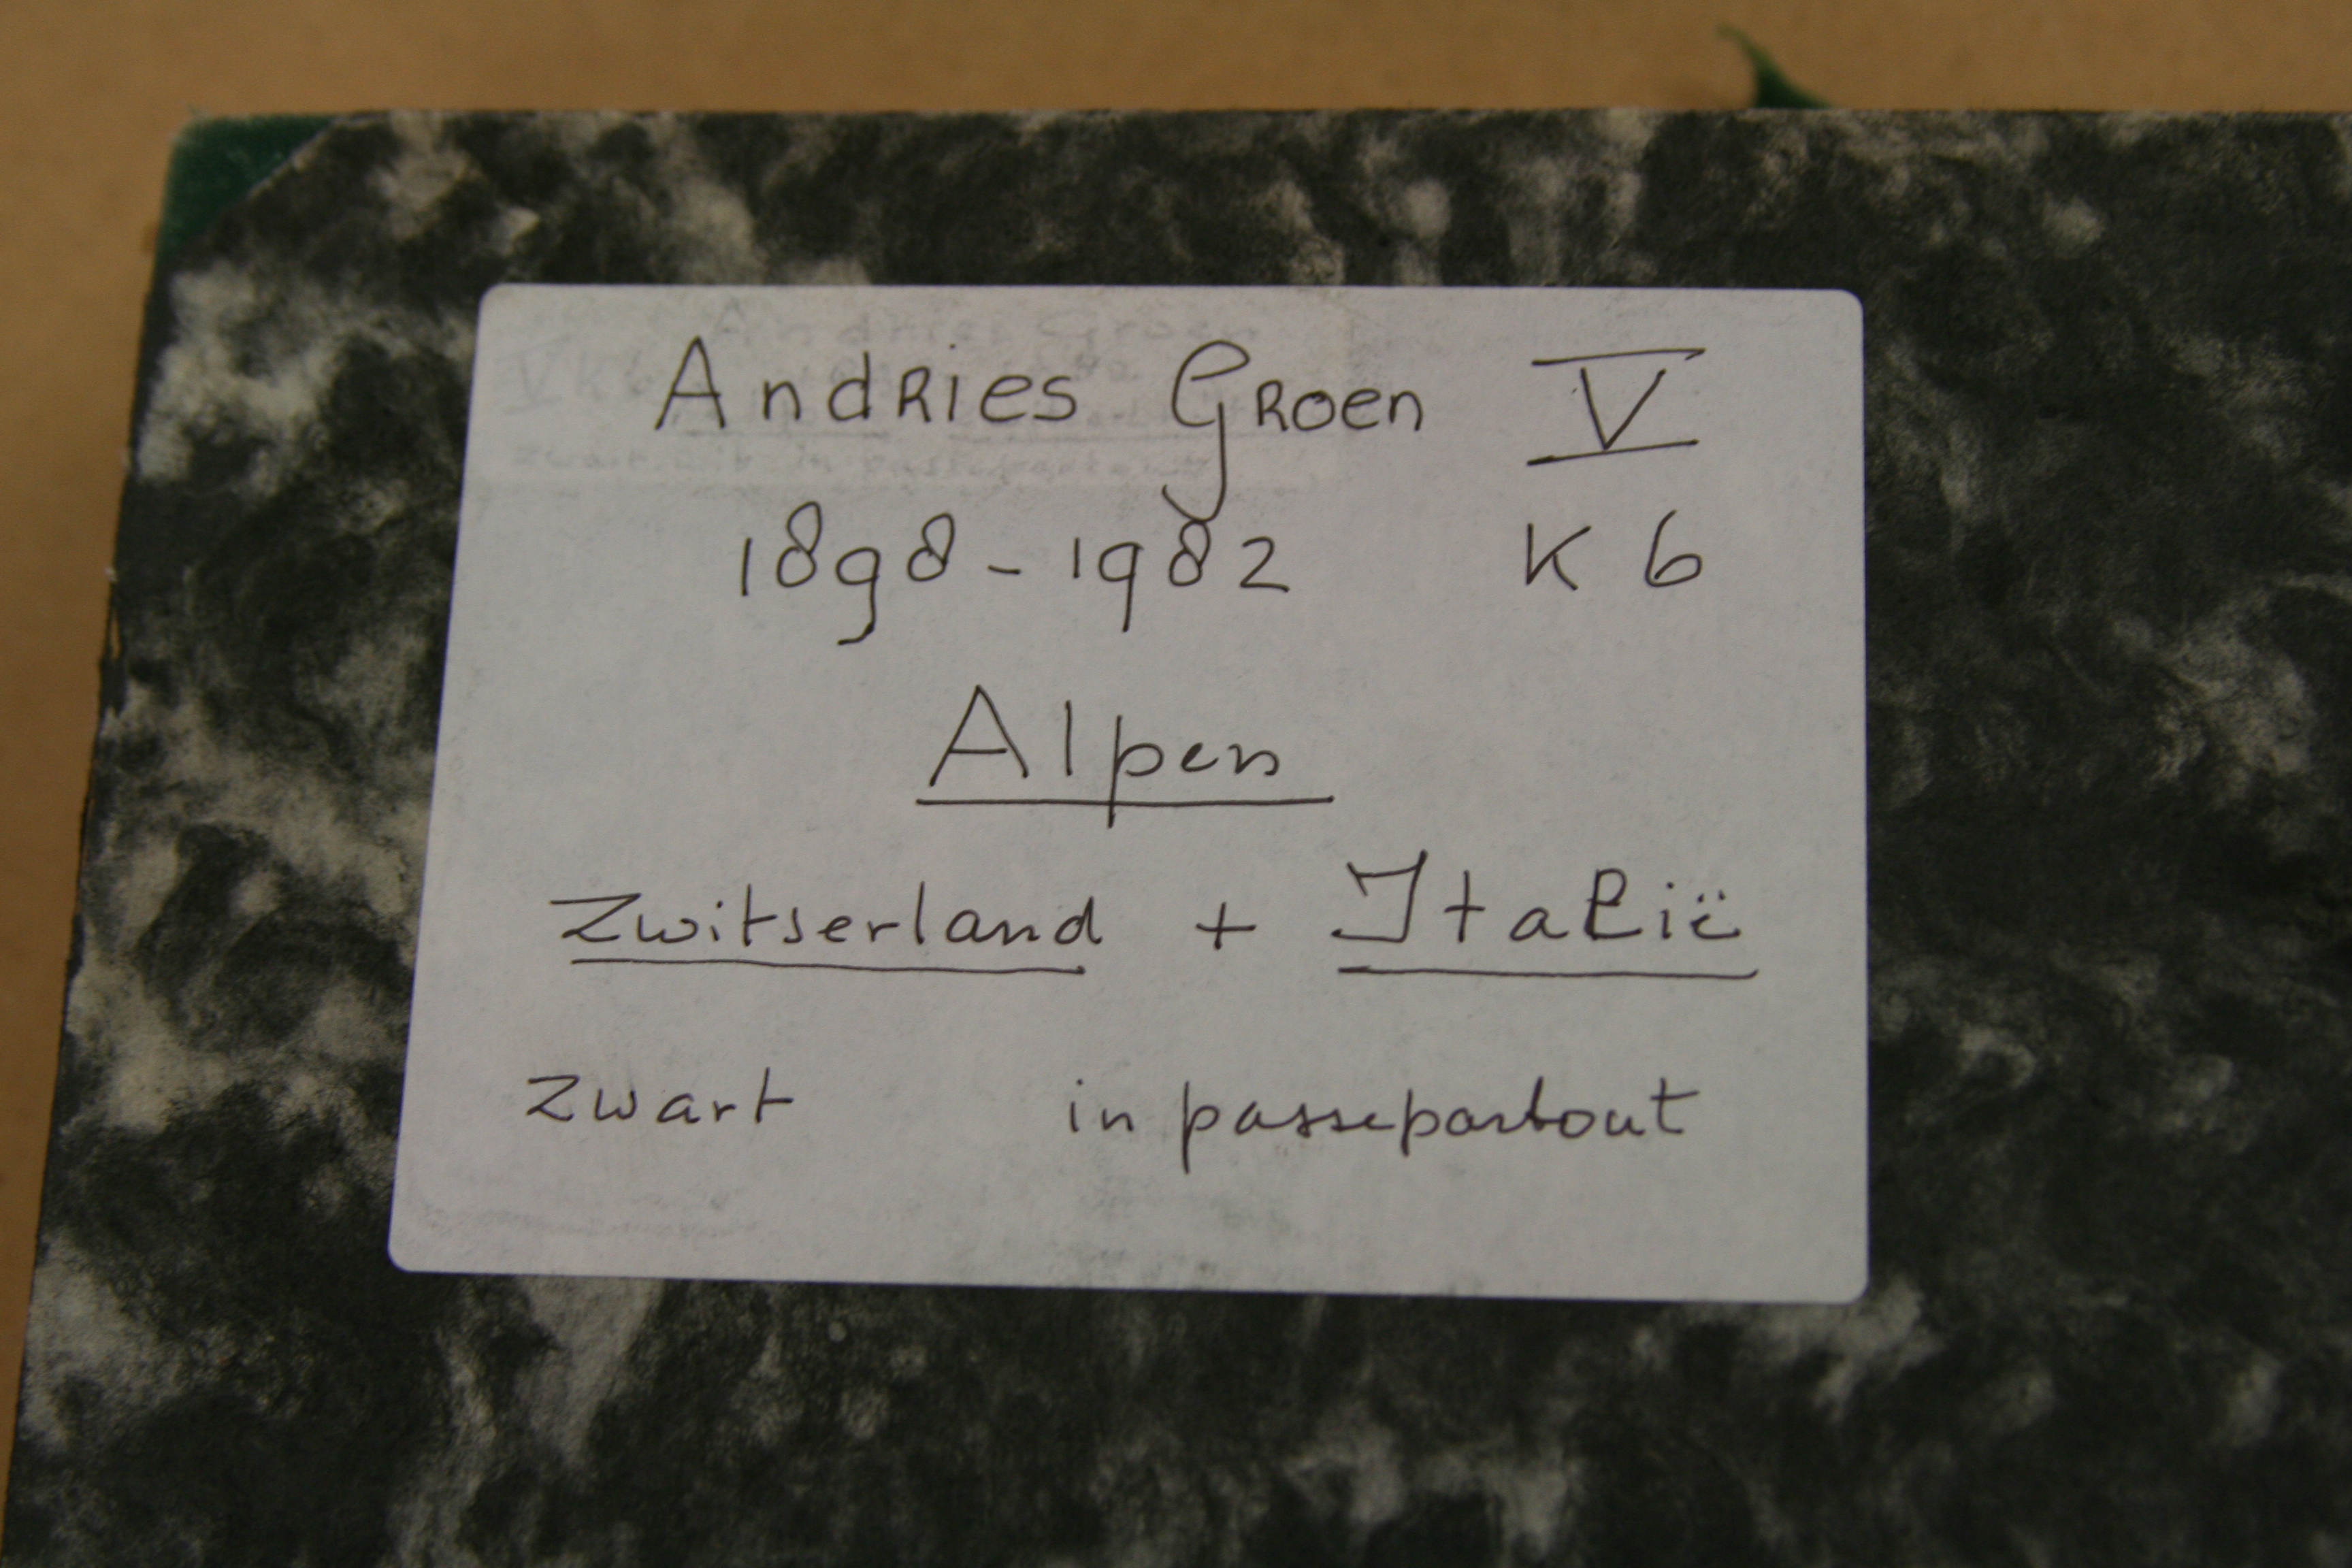 Andries Groen V
1898 - 1982 K 6
Alpen
Zwitserland + Italië
zwart in passepartout